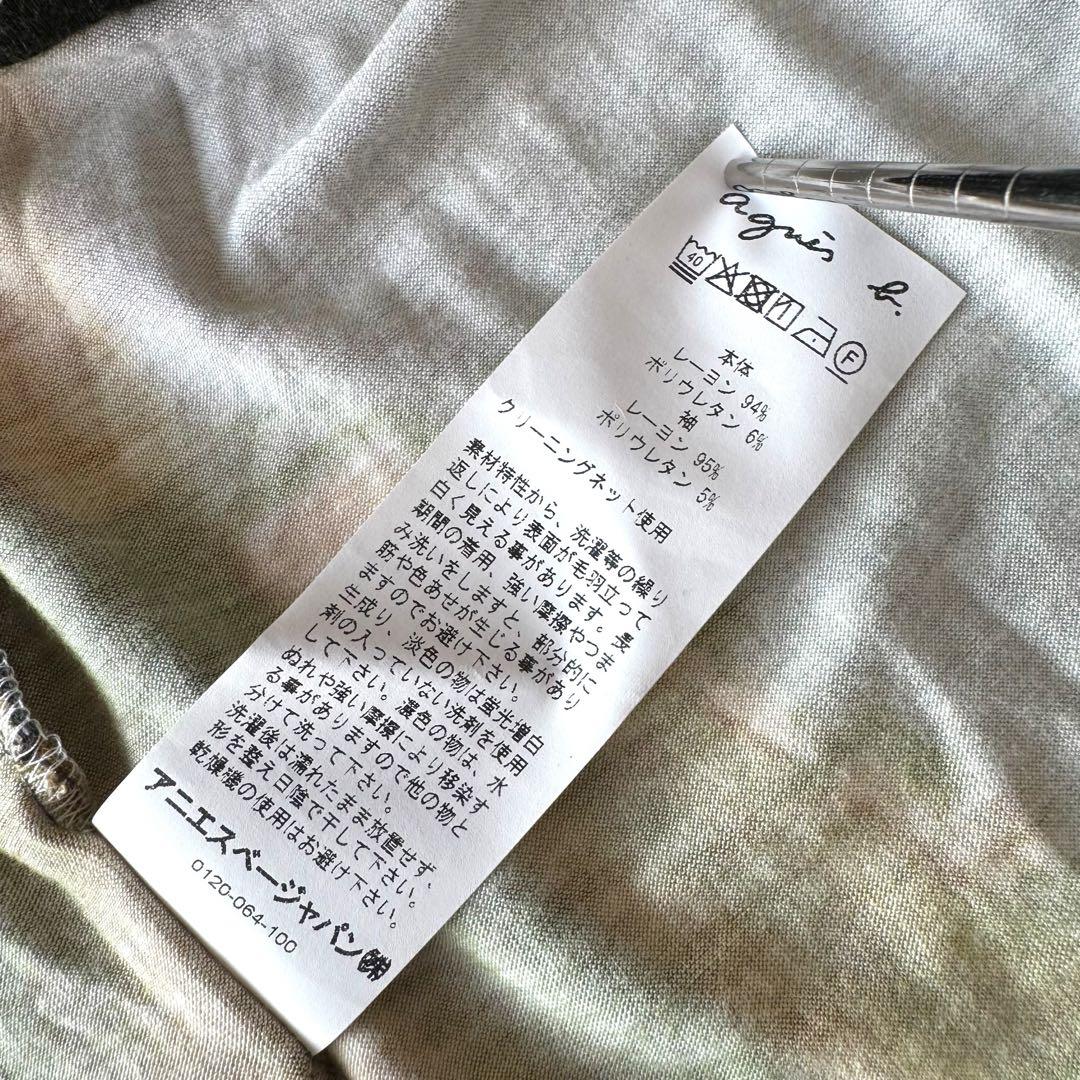 agnès b.
40 F
本体
レーヨン 94%
ポリウレタン 6%
袖
レーヨン 95%
ポリウレタン 5%
クリーニングネット使用
素材特性から、洗濯等の繰り
返しにより表面が毛羽立って
白く見える事があります。長
期間の着用、強い摩擦やつま
み洗いをしますと、部分的に
筋や色あせが生じる事があり
ますのでお避け下さい。
生成り、淡色の物は蛍光増白
剤の入っていない洗剤を使用
して下さい。濃色の物は、水
ぬれや強い摩擦により移染す
る事がありますので他の物と
分けて洗って下さい。
洗濯後は濡れたまま放置せず、
形を整え日陰で干して下さい。
乾燥機の使用はお避け下さい。
アニエスベージャパン㈱
0120-064-100